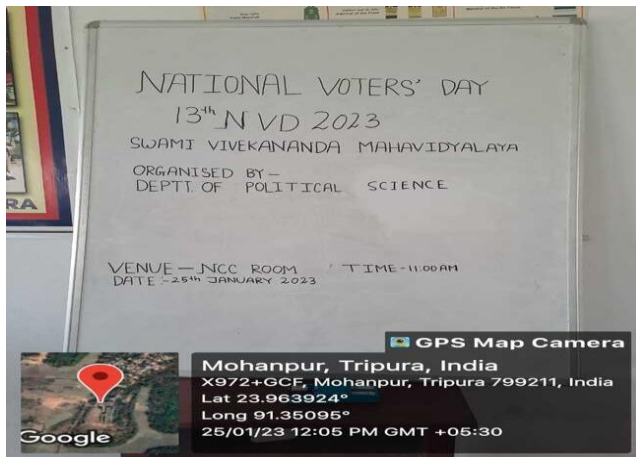 NATIONAL VOTERS' DAY
13th NVD 2023
SWAMI VIVEKANANDA MAHAVIDYALAYA
ORGANISED BY –
DEPTT. OF POLITICAL SCIENCE
VENUE – NCC ROOM ' TIME - 11:00 AM
DATE :- 25th JANUARY 2023
RA
GPS Map Camera
Mohanpur, Tripura, India
X972+GCF, Mohanpur, Tripura 799211, India
Lat 23.963924°
Long 91.35095°
25/01/23 12:05 PM GMT +05:30
Google